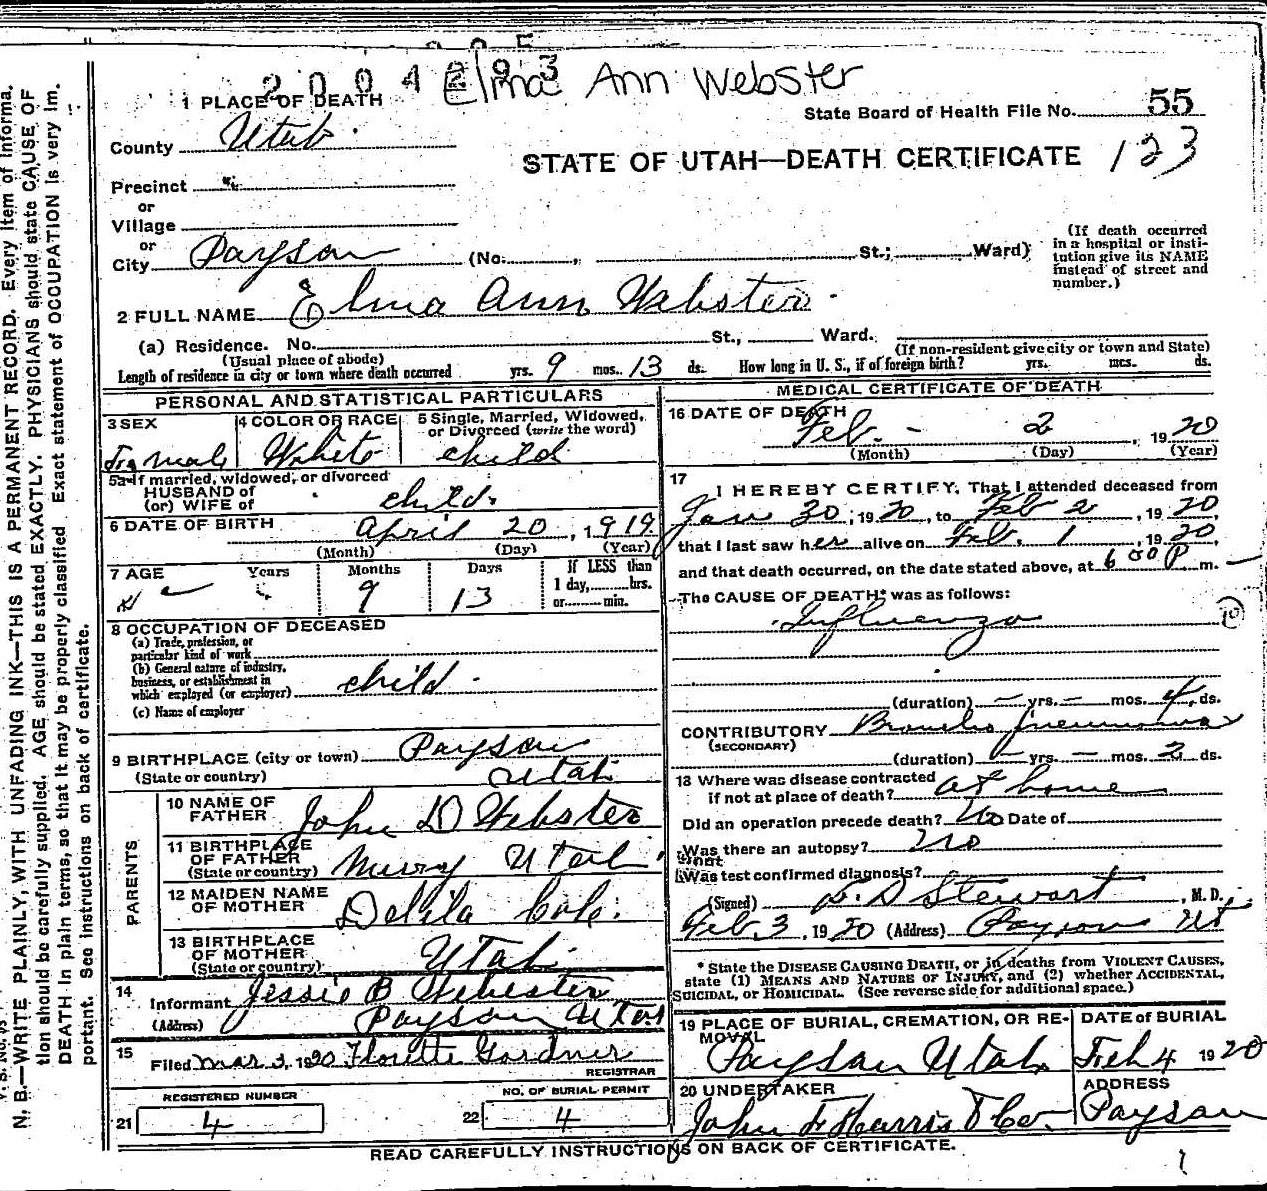 2004293
Elma Ann Webster
1 PLACE OF DEATH
State Board of Health File No. 55
County Utah
STATE OF UTAH—DEATH CERTIFICATE 123
Precinct
or
Village
or
City Payson (No. , St.; Ward)
(If death occurred in a hospital or insti-
tution give its NAME
instead of street and
number.)
2 FULL NAME Elma Ann Webster
(a) Residence. No. St., Ward.
(Usual place of abode) (If non-resident give city or town and State)
Length of residence in city or town where death occurred yrs. 9 mos. 13 ds. How long in U. S., if of foreign birth? yrs. mos. ds.
PERSONAL AND STATISTICAL PARTICULARS
3 SEX 4 COLOR OR RACE 5 Single, Married, Widowed,
or Divorced (write the word)
Female White child
5a If married, widowed, or divorced
HUSBAND of
(or) WIFE of child
6 DATE OF BIRTH April 20, 1919
(Month) (Day) (Year)
7 AGE Years Months Days If LESS than
1 day, hrs.
or min.
9 13
8 OCCUPATION OF DECEASED
(a) Trade, profession, or
particular kind of work
(b) General nature of industry,
business, or establishment in
which employed (or employer) child
(c) Name of employer
9 BIRTHPLACE (city or town) Payson
(State or country) Utah
PARENTS
10 NAME OF
FATHER John D Webster
11 BIRTHPLACE
OF FATHER
(State or country) Murry Utah
12 MAIDEN NAME
OF MOTHER Delila Cole
13 BIRTHPLACE
OF MOTHER
(State or country) Utah
14
Informant Jessie B Webster
(Address) Payson Utah
15
Filed Mar 3, 1920 Florette Gardner
REGISTRAR
REGISTERED NUMBER
21 4
NO. OF BURIAL PERMIT
22 4
MEDICAL CERTIFICATE OF DEATH
16 DATE OF DEATH
Feb. - 2, 1920
(Month) (Day) (Year)
17
I HEREBY CERTIFY, That I attended deceased from
Jan 30, 1920, to Feb 2, 1920
that I last saw her alive on Feb. 1, 1920
and that death occurred, on the date stated above, at 6 00 P m.
The CAUSE OF DEATH* was as follows:
Influenza 10
(duration) — yrs. — mos. 4 ds.
CONTRIBUTORY Broncho pneumonia
(SECONDARY)
(duration) — yrs. — mos. 2 ds.
18 Where was disease contracted
if not at place of death? at home
Did an operation precede death? No Date of
Was there an autopsy? No
What
Was test confirmed diagnosis?
(Signed) L. D Stewart, M. D.
Feb. 3, 1920 (Address) Payson Ut
* State the DISEASE CAUSING DEATH, or in deaths from VIOLENT CAUSES,
state (1) MEANS AND NATURE OF INJURY, and (2) whether ACCIDENTAL,
SUICIDAL, or HOMICIDAL. (See reverse side for additional space.)
19 PLACE OF BURIAL, CREMATION, OR RE-
MOVAL
Payson Utah
DATE of BURIAL
Feb 4 1920
20 UNDERTAKER
John F Harris & Co.
ADDRESS
Payson
READ CAREFULLY INSTRUCTIONS ON BACK OF CERTIFICATE.
N. B.—WRITE PLAINLY, WITH UNFADING INK—THIS IS A PERMANENT RECORD. Every item of informa-
tion should be carefully supplied. AGE should be stated EXACTLY. PHYSICIANS should state CAUSE OF
DEATH in plain terms, so that it may be properly classified. Exact statement of OCCUPATION is very im-
portant. See instructions on back of certificate.